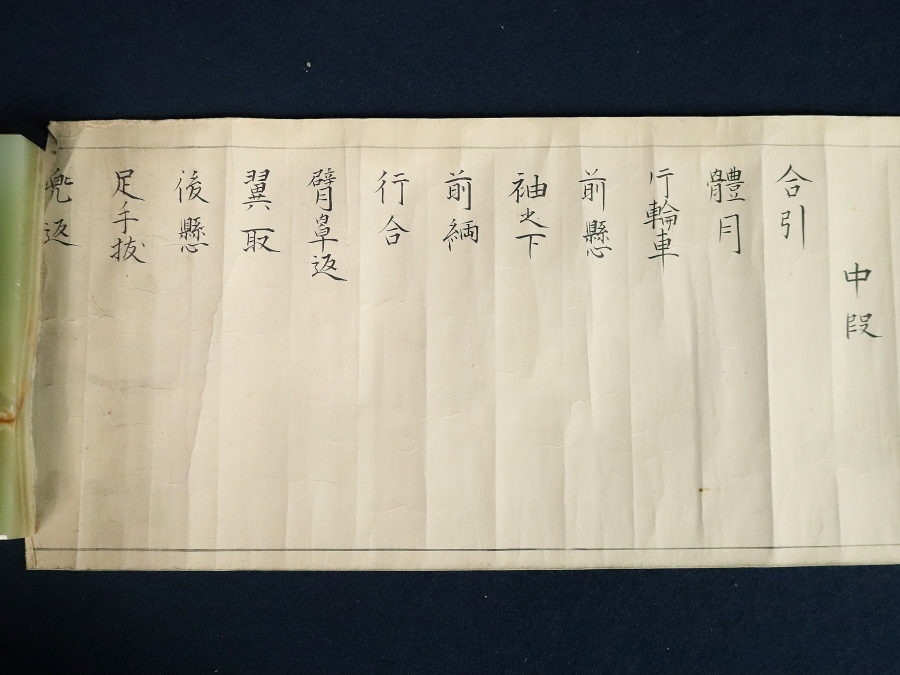 中段
合引
體月
片輪車
前懸
袖之下
前
行合
臂返
翼取
後懸
足手抜
兜返